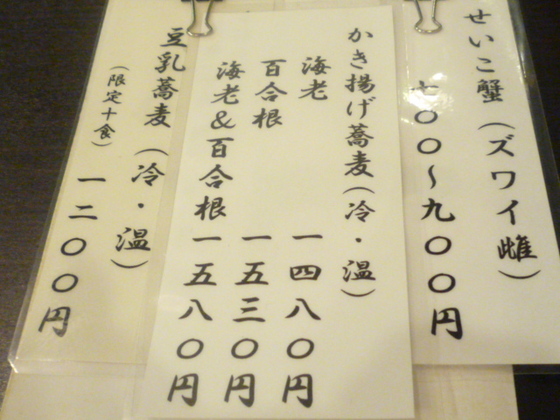 せいこ蟹（ズワイ雌）
七〇〇〜九〇〇円
かき揚げ蕎麦（冷・温）
海老 一四八〇円
百合根 一五三〇円
海老&百合根 一五八〇円
豆乳蕎麦（冷・温）
（限定十食） 一二〇〇円